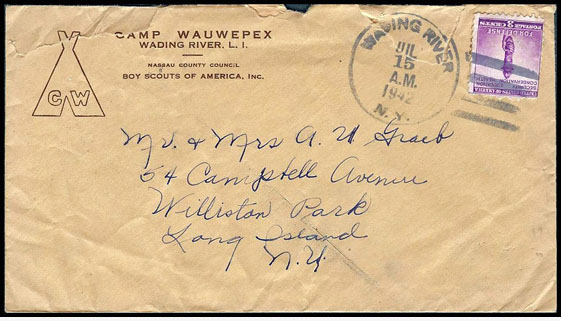 CAMP WAUWEPEX
WADING RIVER, L. I.
NASSAU COUNTY COUNCIL
BOY SCOUTS OF AMERICA, INC.
C W
WADING RIVER
JUL
15
A.M.
1942
N. Y.
3 CENTS 3
POSTAGE
FOR DEFENSE
UNITED STATES OF AMERICA
SECURITY
EDUCATION
CONSERVATION
HEALTH
Mr. & Mrs A. W Graeb
54 Campbell Avenue
Williston Park
Long Island
N.Y.